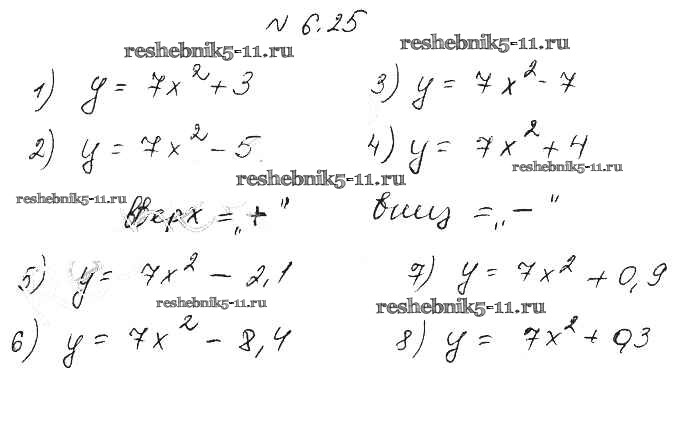 № 6.25
reshebnik5-11.ru reshebnik5-11.ru
1) y = 7x² + 3 3) y = 7x² - 7
2) y = 7x² - 5 4) y = 7x² + 4
reshebnik5-11.ru
reshebnik5-11.ru reshebnik5-11.ru
вверх = „+" вниз = „-"
5) y = 7x² - 2,1 7) y = 7x² + 0,9
reshebnik5-11.ru reshebnik5-11.ru
6) y = 7x² - 8,4 8) y = 7x² + 0,3